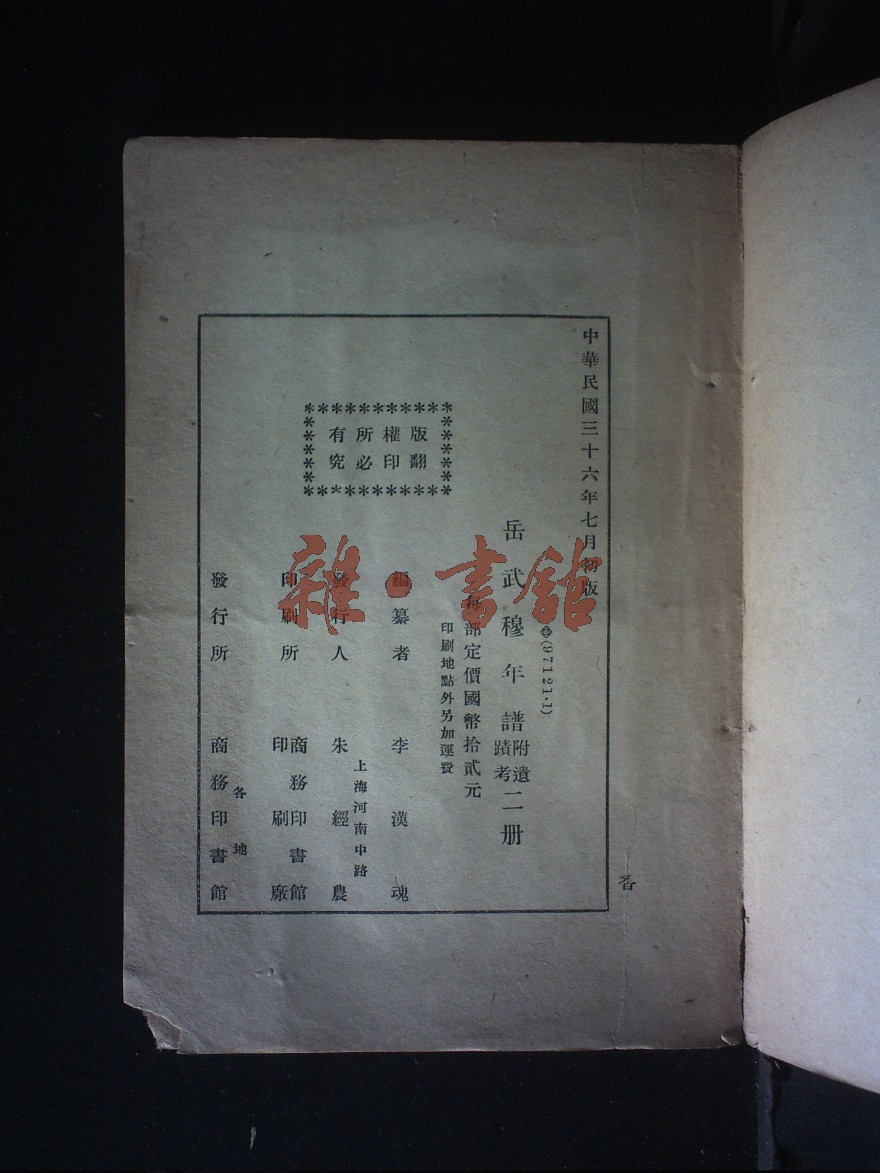 中華民國三十六年七月初版
(97121·1)
岳武穆年譜附遺蹟考二册
每部定價國幣拾貳元
印刷地點外另加運費
版權所有
翻印必究
編纂者 李漢魂
上海河南中路
發行人 朱經農
印刷所 商務印書館印刷廠
各地
發行所 商務印書館
雜·書館